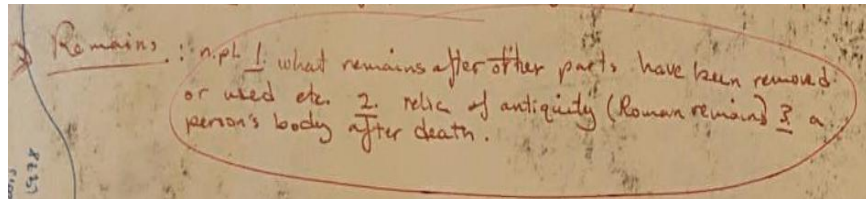 Remains : n.pl 1 what remains after other parts have been removed
or used etc. 2. relic of antiquity (Roman remains) 3 a
person's body after death.
1978